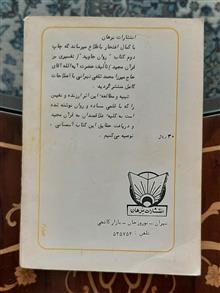 انتشارات برهان
با کمال افتخار باطلاع میرساند که چاپ
دوم کتاب " روان جاوید " تفسیری بر
قرآن مجید / تألیف حضرت آیةالله آقای
حاج میرزا محمد ثقفی تهرانی با اصلاحات
کامل منتشر گردید .
تهیه و مطالعه این اثر ارزنده و نفیس
را که با قلمی ساده و روان نوشته شده
است به کلیه علاقمندان به قرآن مجید
و دریافت حقایق این کتاب آسمانی
توصیه می‌کنیم .
۳۰ ریال
انتشارات برهان
تهران - نوروزخان - بازار کاشفی
تلفن : ۵۳۵۷۵۲